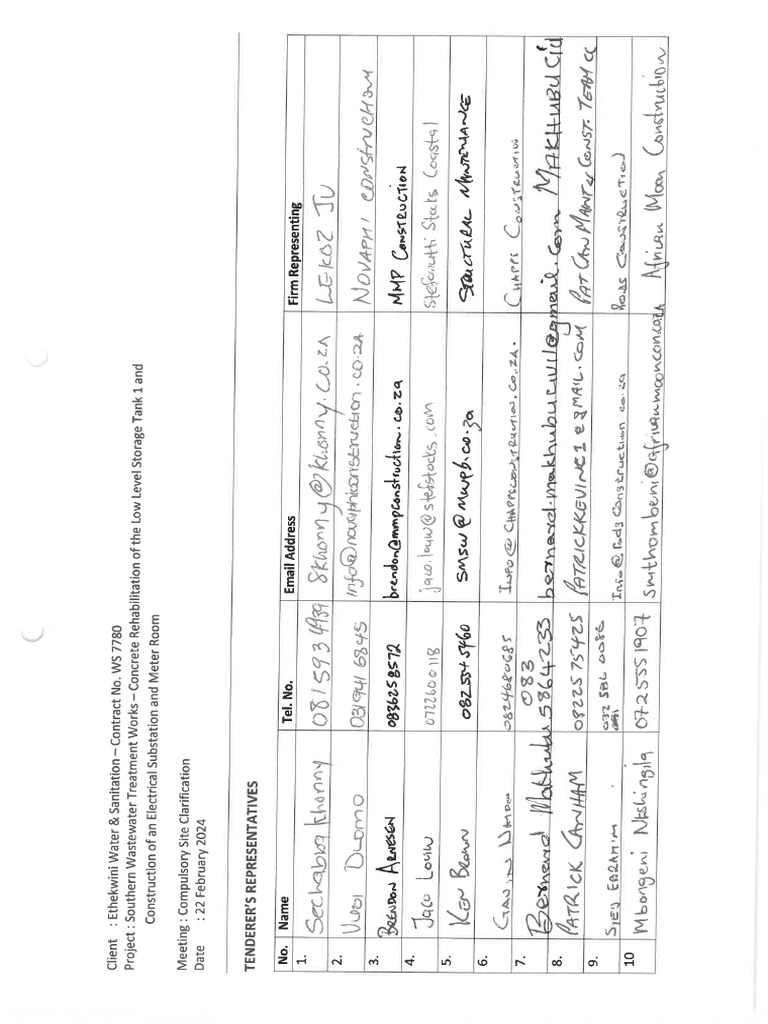 Client : Ethekwini Water & Sanitation – Contract No. WS 7780
Project : Southern Wastewater Treatment Works – Concrete Rehabilitation of the Low Level Storage Tank 1 and
Construction of an Electrical Substation and Meter Room
Meeting : Compulsory Site Clarification
Date : 22 February 2024
TENDERER'S REPRESENTATIVES
No. Name Tel. No. Email Address Firm Representing
1. Sechaba Khonny 081 593 4939 skhonny@khonny.co.za LEKOZ JV
2. VUSI DLOMO 031 941 6845 info@novaphiconstruction.co.za NOVAPHI CONSTRUCTION
3. BRENDON ARNESEN 0836258572 brendon@mmpconstruction.co.za MMP CONSTRUCTION
4. JACO LOUW 0722600118 jaco.louw@stefstocks.com Stefanutti Stocks Coastal
5. KEN BROWN 082 554 5460 smsw@mwpb.co.za STRUCTURAL MAINTENANCE
6. GAVIN 0824680685 INFO@CHAPPSCONSTRUCTION.CO.ZA. CHAPPS CONSTRUCTION
7. Bernard Makhubu 083 5864233 bernard.makhubucivil@gmail.com MAKHUBU Civil
8. PATRICK CANHAM 0822575425 PATRICKKEVINC1@GMAIL.COM PAT CAN MANT & CONST. TEAM CC
9. SIED EBRAHIM. 032 586 0086 Info@Rods Construction.co.za RODS CONSTRUCTION
10 Mbongeni Ntshingila 0725551907 Smthombeni@africanmooncon.co.za African Moon Construction